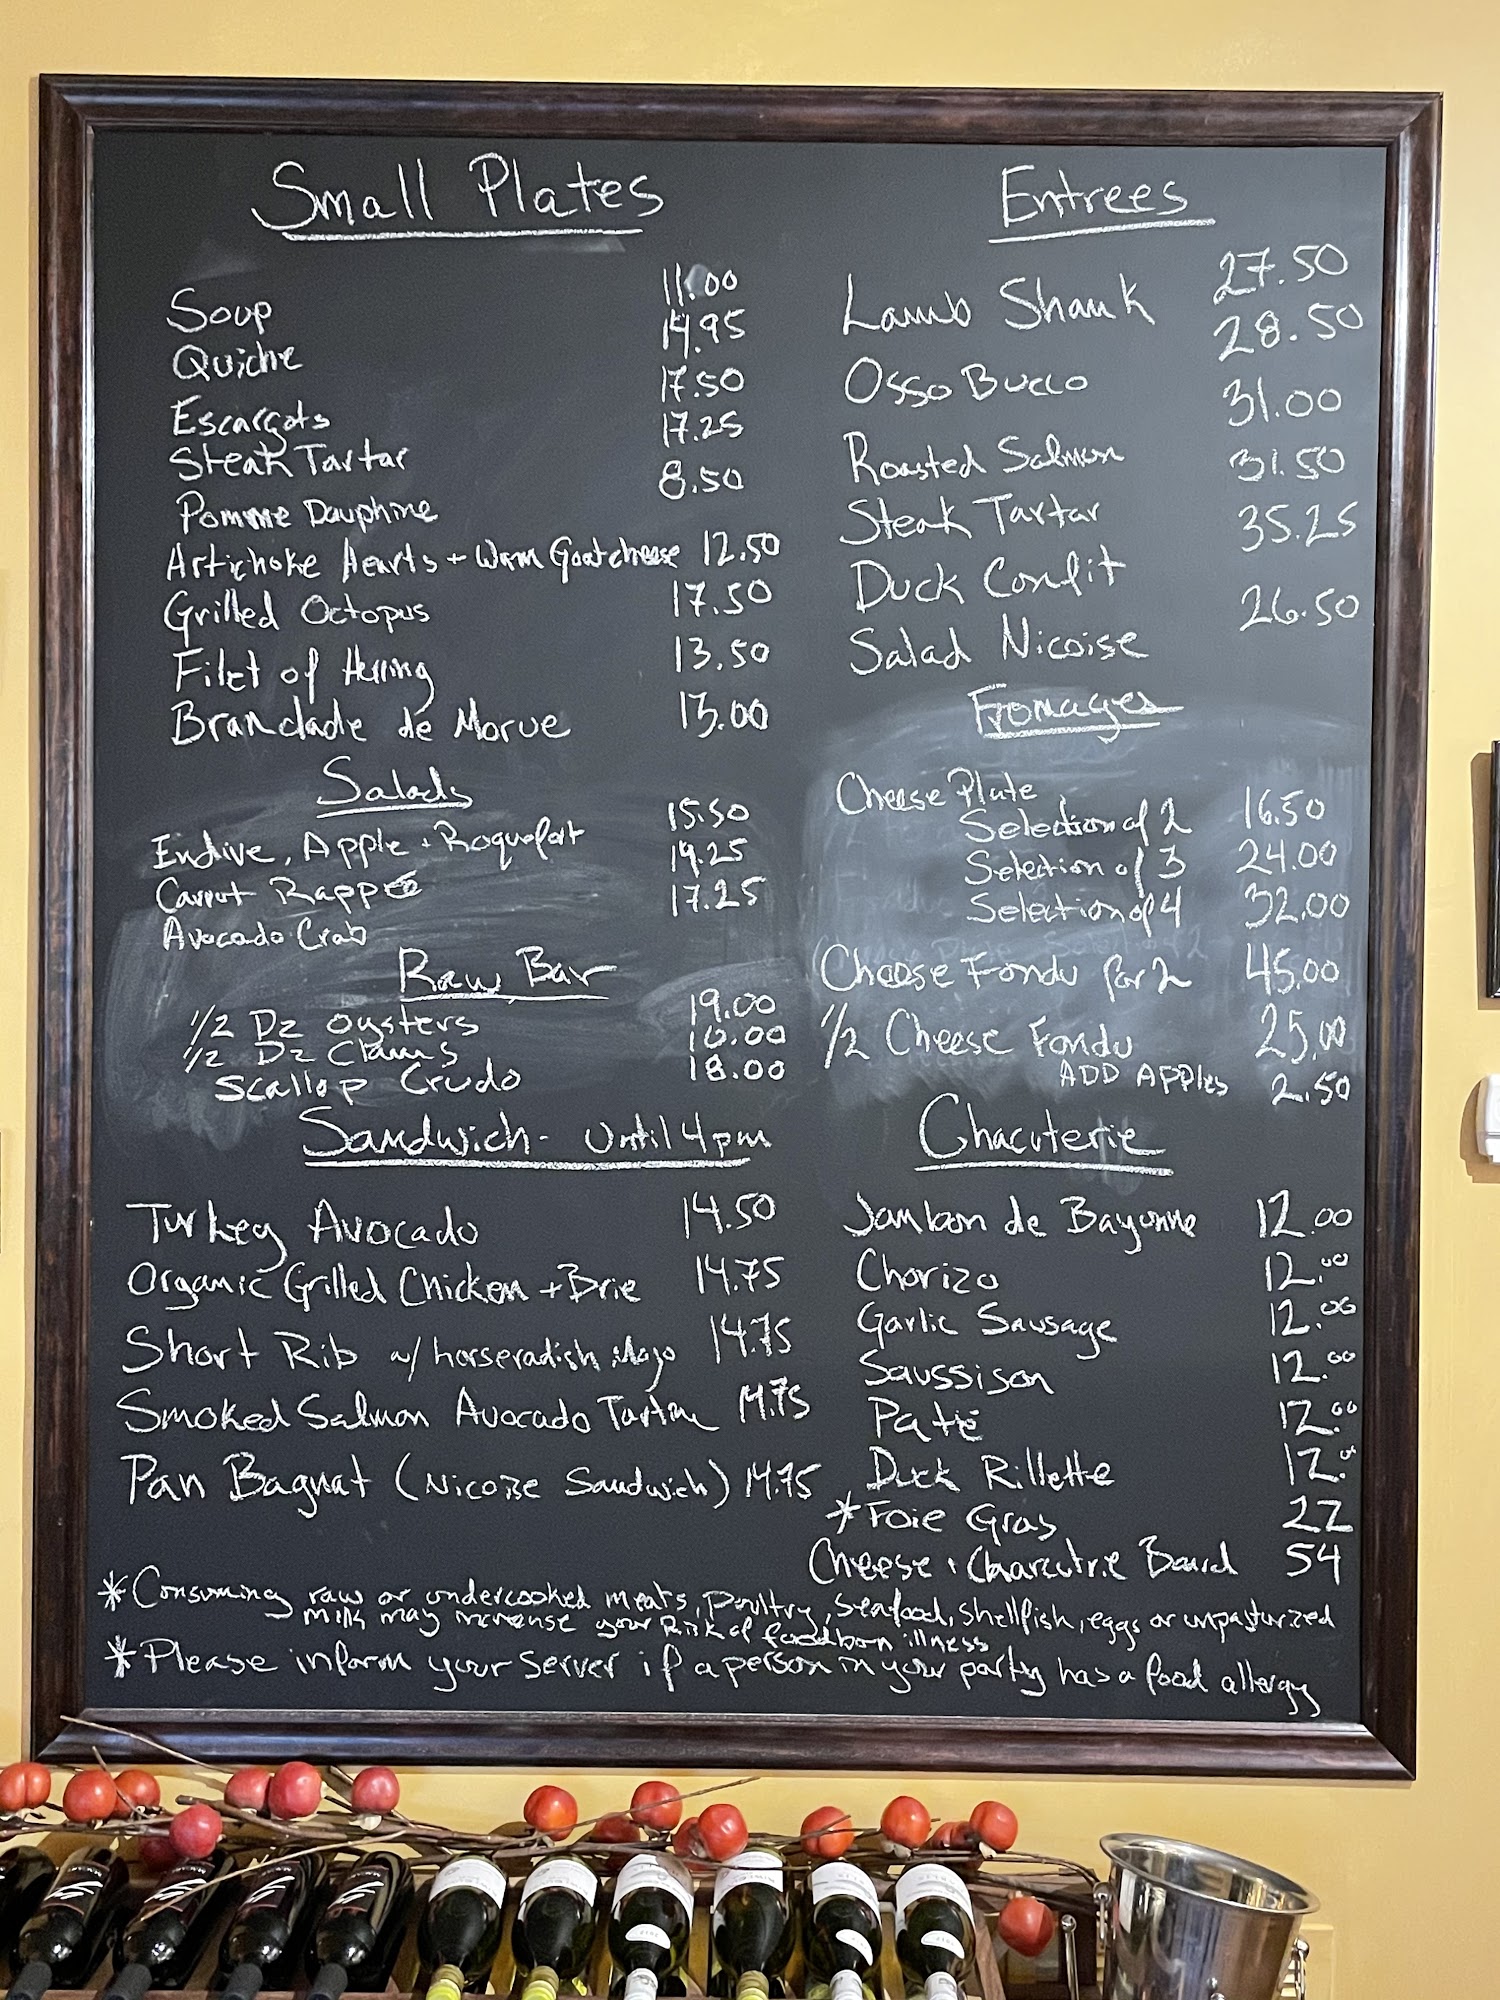 Small Plates
Soup 11.00
Quiche 14.95
Escargots 17.50
Steak Tartar 17.25
Pomme Dauphine 8.50
Artichoke Hearts + Warm Goat cheese 12.50
Grilled Octopus 17.50
Filet of Herring 13.50
Brandade de Morue 13.00
Salads
Endive, Apple + Roquefort 15.50
Carrot Rappe 14.25
Avocado Crab 17.25
Raw Bar
1/2 Dz oysters 19.00
1/2 Dz Clams 10.00
Scallop Crudo 18.00
Sandwich - Until 4pm
Turkey Avocado 14.50
Organic Grilled Chicken + Brie 14.75
Short Rib w/ horseradish Mayo 14.75
Smoked Salmon Avocado Tartine 14.75
Pan Bagnat (Nicoise Sandwich) 14.75
Entrees
Lamb Shank 27.50
Osso Bucco 28.50
Roasted Salmon 31.00
Steak Tartar 31.50
Duck Confit 35.25
Salad Nicoise 26.50
Fromages
Cheese Plate
Selection of 2 16.50
Selection of 3 24.00
Selection of 4 32.00
Cheese Fondu for 2 45.00
1/2 Cheese Fondu 25.00
ADD Apples 2.50
Chacuterie
Jambon de Bayonne 12.00
Chorizo 12.00
Garlic Sausage 12.00
Saussison 12.00
Pate 12.00
Duck Rillette 12.00
*Foie Gras 22
Cheese + Charcutrie Board 54
*Consuming raw or undercooked meats, Poultry, Seafood, Shellfish, eggs or unpasturized
milk may increase your Risk of foodborn illness
*Please inform your server if a person in your party has a food allergy